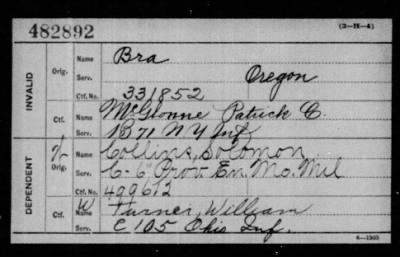 482892
(3-H-4)
INVALID
Orig.
Name Bra
Serv. Oregon
Ctf. No. 331852
Ctf.
Name McGlonne Patrick C.
Serv. 1 B 71 N Y Inf
DEPENDENT
Orig.
Name Collins, Solomon
Serv. C. 6" Prov En. Mo. Mil
Ctf. No. 499612
Ctf.
W
Name Turner, William
Serv. C 105 Ohio Inf.